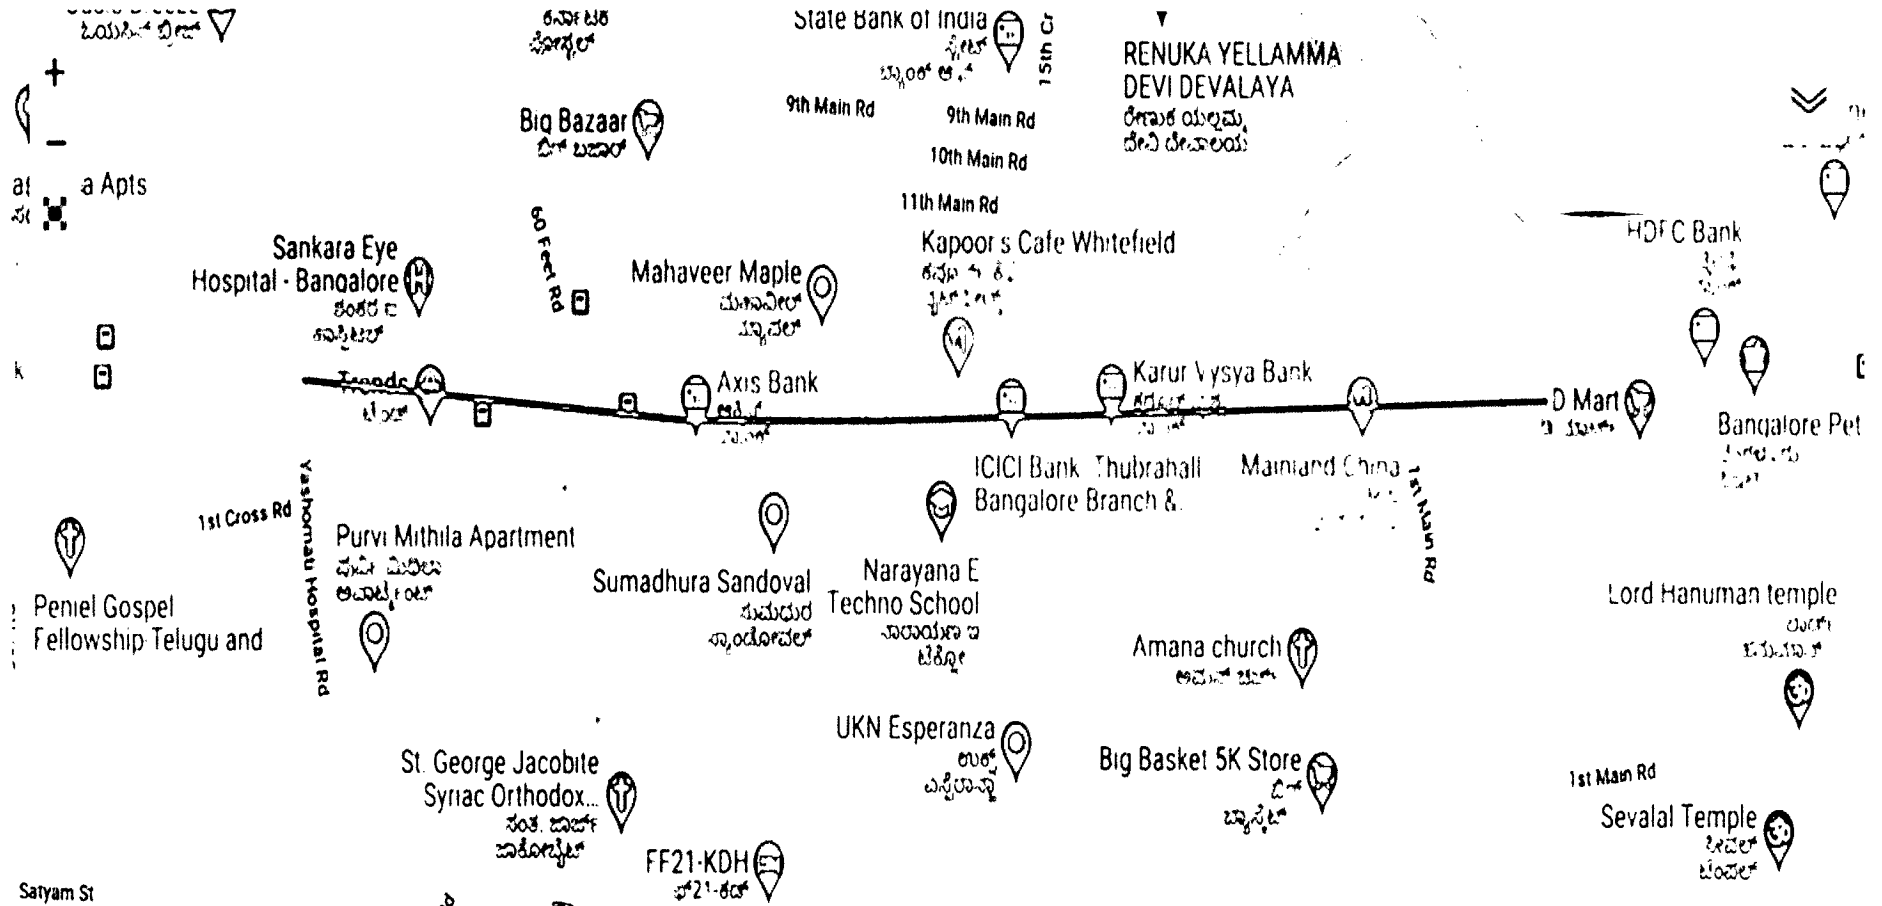 ಓಯಸಿಸ್ ಬ್ರೀಜ್
ಕರ್ನಾಟಕ
State Bank of India
ಸ್ಟೇಟ್
15th Cr
RENUKA YELLAMMA
DEVI DEVALAYA
ರೇಣುಕ ಯಲ್ಲಮ್ಮ
ದೇವಿ ದೇವಾಲಯ
9th Main Rd
9th Main Rd
10th Main Rd
11th Main Rd
Big Bazaar
ಬಿಗ್ ಬಜಾರ್
a Apts
60 Feet Rd
Sankara Eye
Hospital - Bangalore
ಶಂಕರ ಐ
ಹಾಸ್ಪಿಟಲ್
Mahaveer Maple
ಮಹಾವೀರ್
ಮ್ಯಾಪಲ್
Kapoor's Cafe Whitefield
HDFC Bank
Trends
ಟ್ರೆಂಡ್
Axis Bank
Karur Vysya Bank
D Mart
Bangalore Pet
ICICI Bank Thubrahalli
Bangalore Branch &
Mainland China
1st Main Rd
1st Cross Rd
Yashomati Hospital Rd
Purvi Mithila Apartment
ಪುರ್ವಿ ಮಿಥಿಲಾ
ಅಪಾರ್ಟ್ಮೆಂಟ್
Sumadhura Sandoval
ಸುಮಧುರ
ಸ್ಯಾಂಡೋವಲ್
Narayana E
Techno School
ನಾರಾಯಣ ಇ
ಟೆಕ್ನೋ
Peniel Gospel
Fellowship-Telugu and
Lord Hanuman temple
ಲಾರ್ಡ್
ಹನುಮಾನ್
Amana church
ಅಮನ್ ಚರ್ಚ್
UKN Esperanza
ಉಕ್ನ್
ಎಸ್ಪೆರಾನ್ಜಾ
Big Basket 5K Store
ಬಿಗ್
ಬ್ಯಾಸ್ಕೆಟ್
St. George Jacobite
Syriac Orthodox...
ಸಂತ. ಜಾರ್ಜ್
ಜಾಕೋಬೈಟ್
1st Main Rd
Sevalal Temple
ಸೇವಲ್
ಟೆಂಪಲ್
FF21-KDH
ಫ್21-ಕಡ್
Satyam St